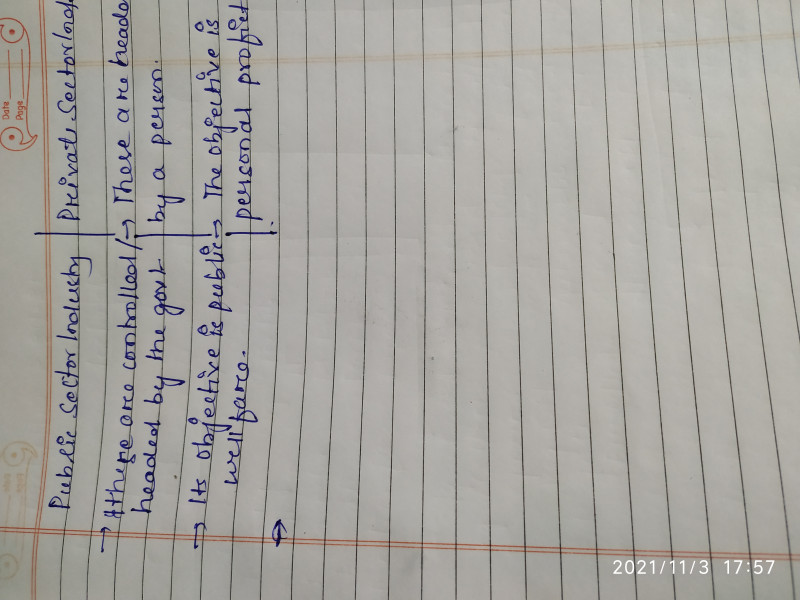 Date
Page
Public Sector Industry | Private Sector Ind
→ these are controlled/ → These are heade
headed by the govt by a person.
→ Its objective is public → The objective is
wellfare. personal profit
→
2021/11/3 17:57